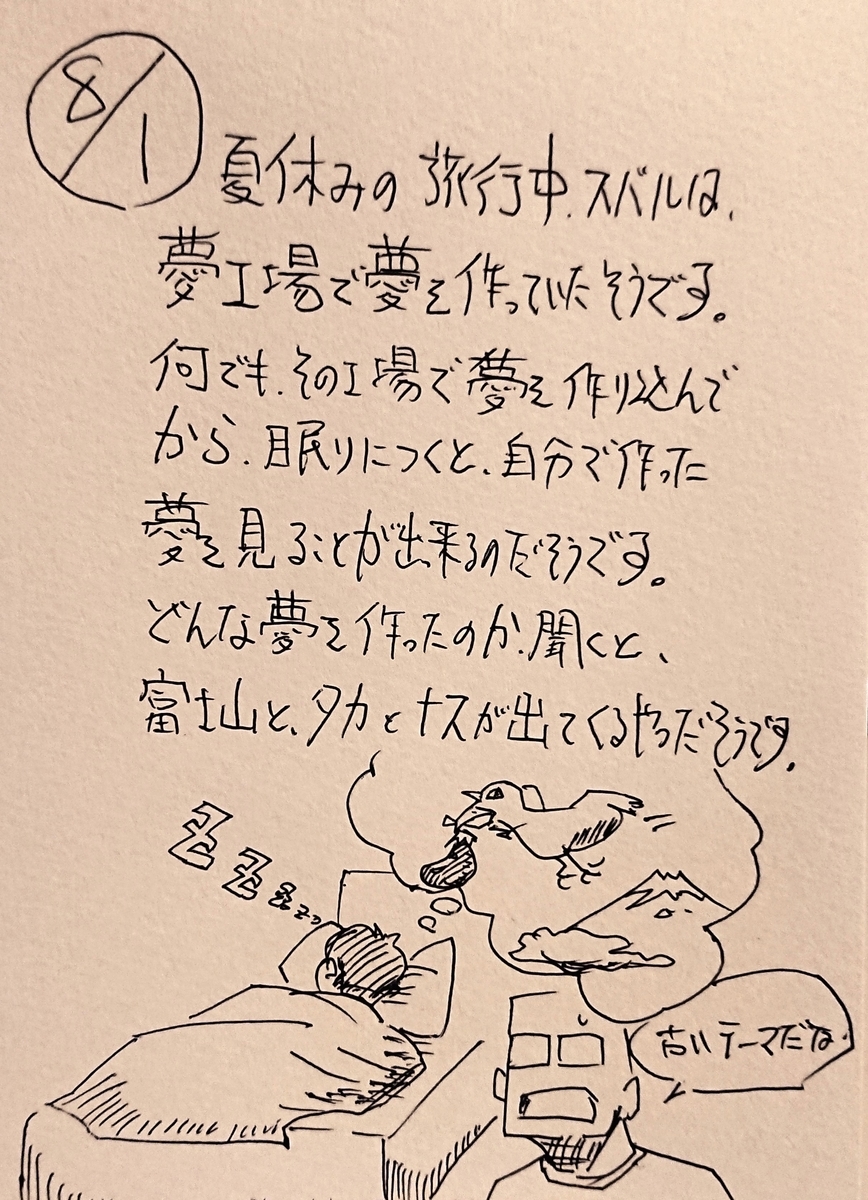 8/1
夏休みの旅行中、スバルは、
夢工場で夢を作っていたそうです。
何でも、その工場で夢を作り込んで
から、眠りにつくと、自分で作った
夢を見ることが出来るのだそうです。
どんな夢を作ったのか、聞くと、
富士山と、タカとナスが出てくるやつだそうです。
ZZzzz
古いテーマだな